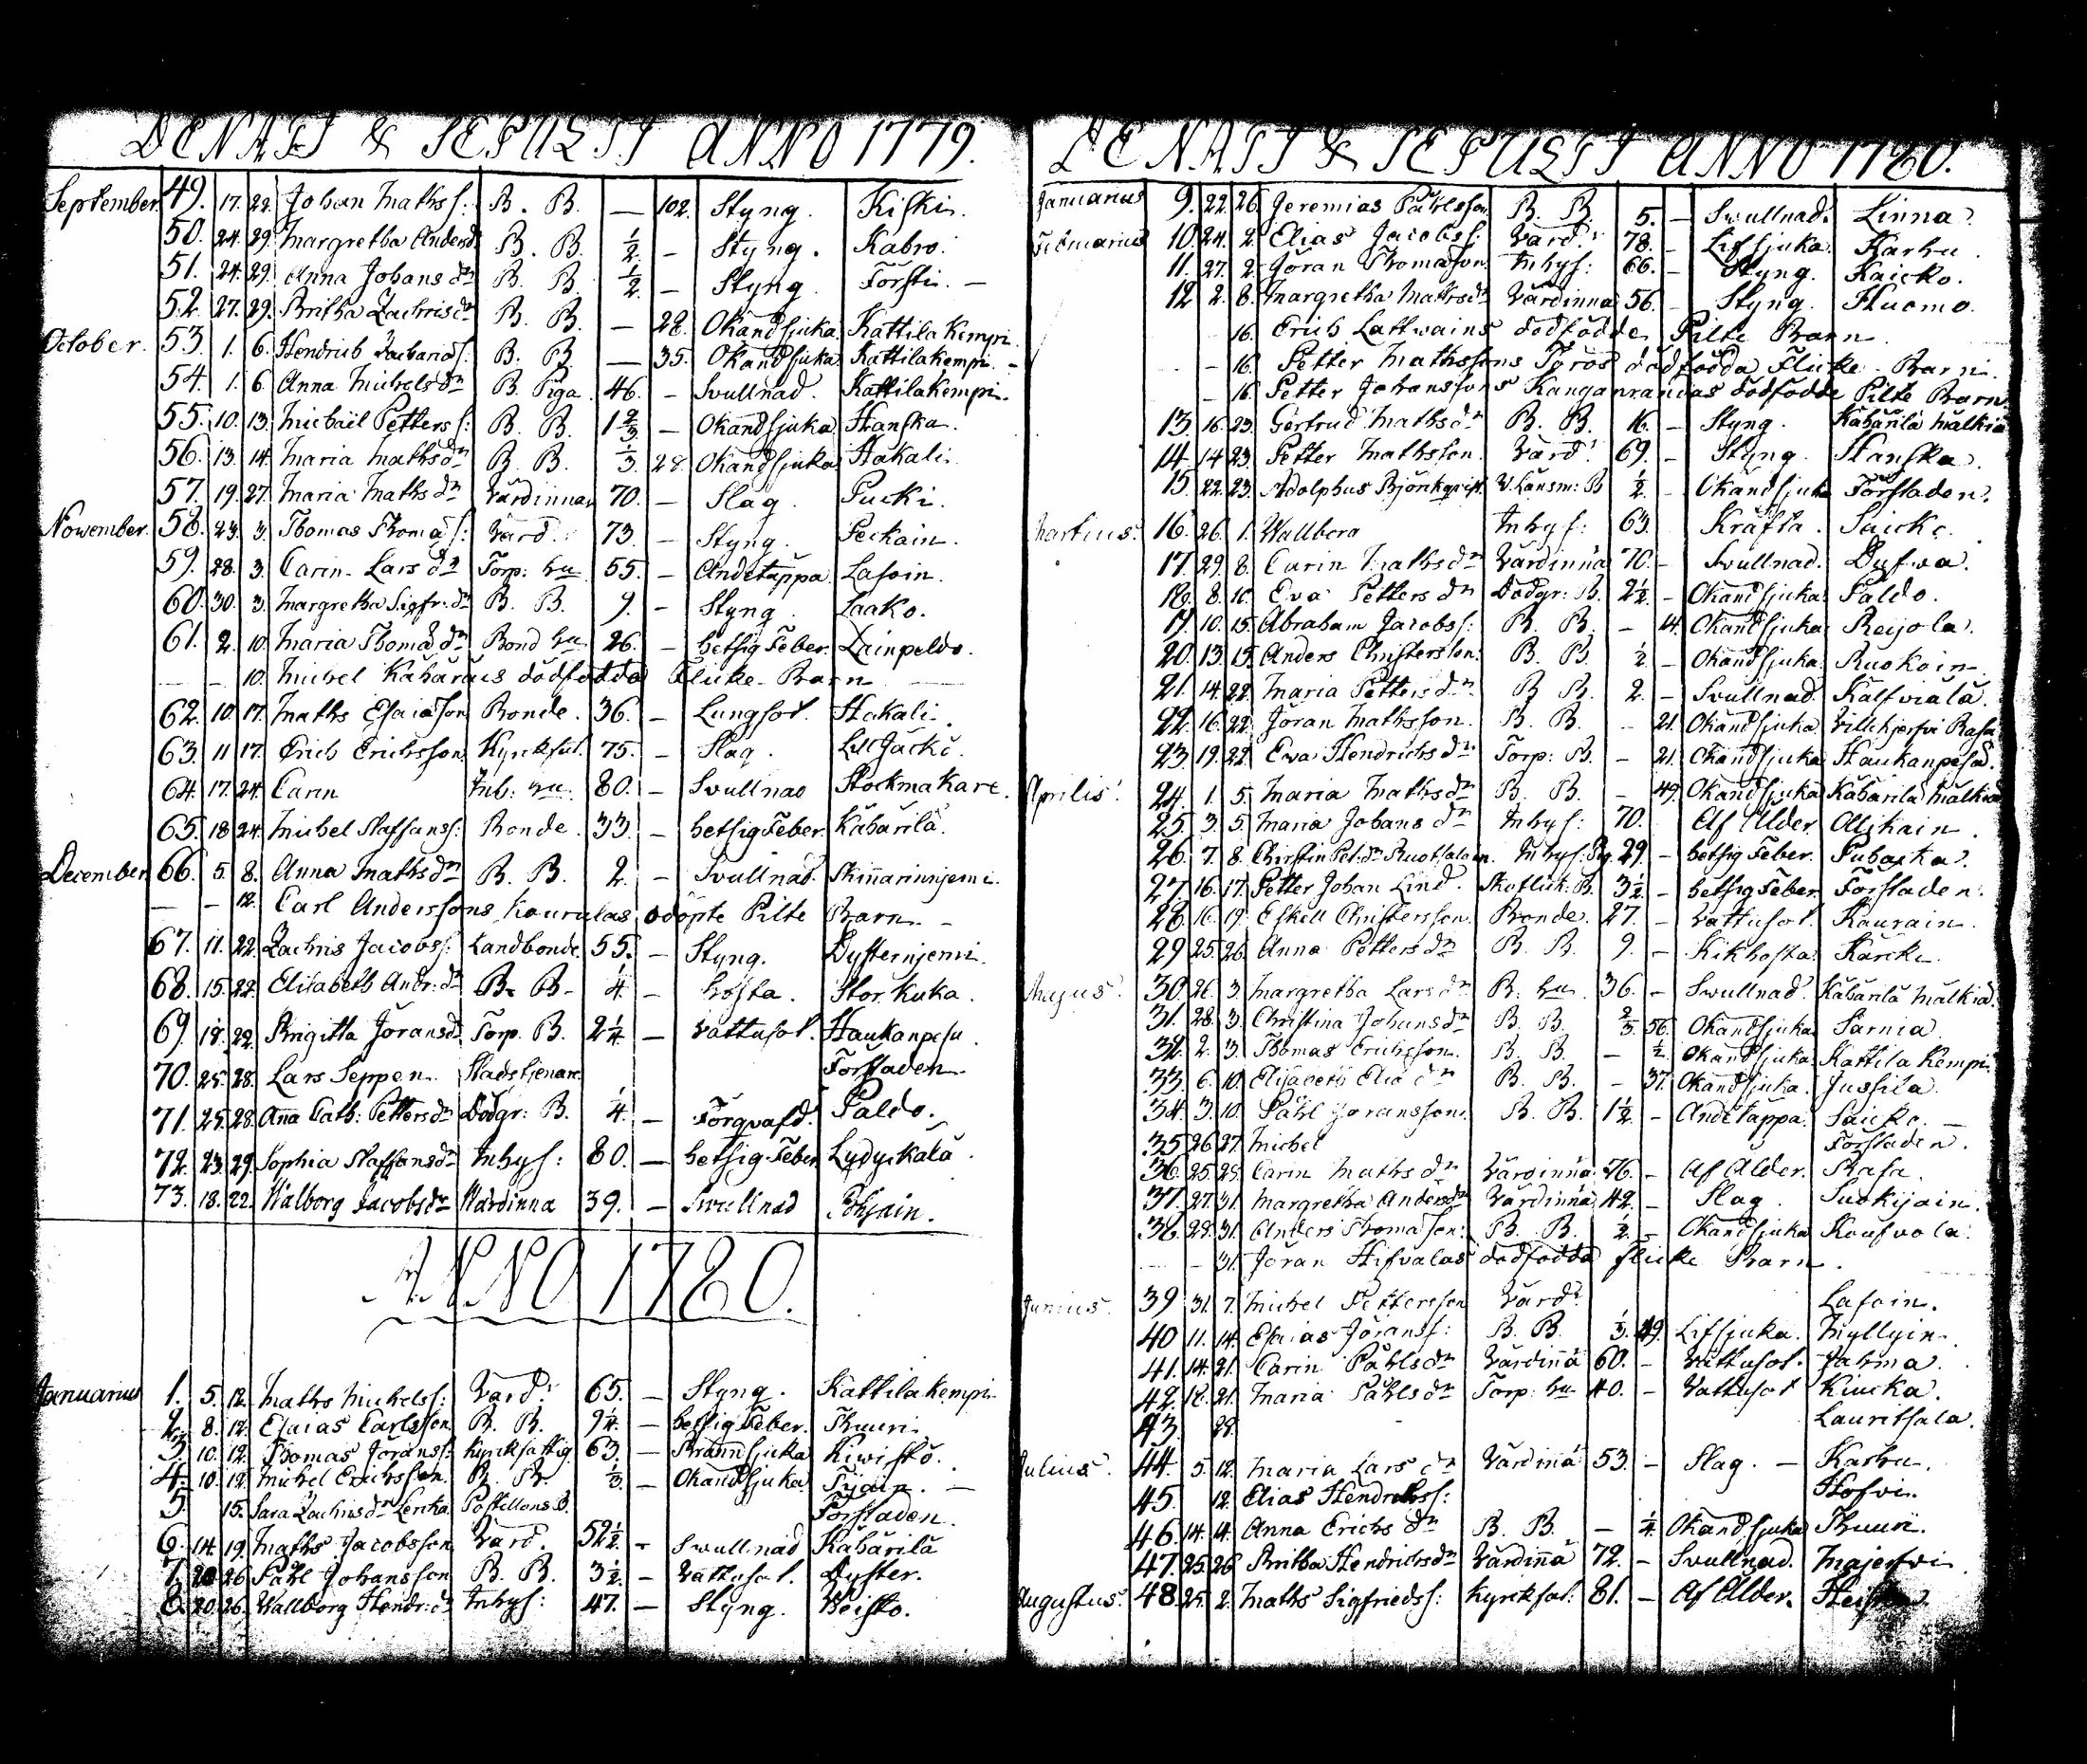 DENATI & SEPULTI ANNO 1779.
September. 49. 17. 22. Johan Mathsf: B. B. — 102. Styng. Kiski.
50. 24. 29. Margretha Andersd. B. B. ½. - Styng. Kabro.
51. 24. 29. Anna Johansdr B. B. ½. - Styng. Försti. -
52. 27. 29. Britha Zachrisdr B. B. — 28. Okänd sjuka Kattilakempi
October. 53. 1. 6. Hendrich Zachariæs: B. B. — 35. Okänd sjuka Kattilakempi. -
54. 1. 6. Anna Michelsdr B. Piga 46. - Svullnad. Kattilakempi.
55. 10. 13. Michaël Petters f: B. B. 1⅔. - Okänd sjuka Hanska.
56. 13. 14. Maria Mathsdr B. B. ⅓. 28. Okänd sjuka Hakali.
57. 19. 27. Maria Mathsdr Värdinna 70. - Slag. Pucki.
November. 58. 23. 3. Thomas Thomæs: Värd. 73. - Styng. Peckain.
59. 28. 3. Carin Larsdr Torp: hu 55. - Andetäppa Lasoin.
60. 30. 3. Margretha Sigfr:dr B. B. 9. - Styng. Laako.
61. 2. 10. Maria Thomædr Bond hu 26. - hetsig Feber. Lainpeldo.
— — 10. Michel Kähäräis dödfödda Flicke-Barn
62. 10. 17. Maths Esaiæson Bonde. 36. - Lungsot. Hakali.
63. 11 17. Erich Erichsson Kyrckful. 75. - Slag. Lill Jäckö.
64. 17. 24. Carin Inh: hu. 80. - Svullnad Stockmakare.
65. 18 24. Michel Staffansf: Bonde. 33. - hetsig Feber. Kähärilä.
December. 66. 5. 8. Anna Mathsdr B. B. 2. - Svullnad. Skinnarinnjemi.
— — 12. Carl Anderssons Kaurulas odöpte Pilte Barn -
67. 11. 22. Zachris Jacobsf: Landbonde. 55. - Styng. Dysternjemi.
68. 15. 22. Elisabeth Andr:dr B. B. ¼. - hosta. Stor. Kuka.
69. 18. 22. Brigitta Jöransd. Torp. B. 2¼. - Vattusot. Haukanpesu
70. 25. 28. Lars Seppen. Stadstjenare Förstaden.
71. 25. 28. Anna Cath: Pettersdr Dödgr: B. ¼. - Förqvafd. Paldo.
72. 23. 29. Sophia Staffansdr Inhys: 80. — hetsig Feber Lydyckälä.
73. 18. 22. Walborg Jacobsdr Wärdinna 39. - Swullnad Pohjain.
ANNO 1780.
Januarius 1. 5. 12. Maths Michelsf: Värd. 65. - Styng. Kattilakempi
2. 8. 12. Esaias Carlsson B. B. 9¼. - hetsig Feber. Thuuri.
3. 10. 12. Thomas Jöransf: Kyrckfattig 63. - Brännsjuka Kiwistö.
4. 10. 12. Michel Erichsson. B. B. ⅓. - Okänd sjuka. Tijain. -
5. 15. Sara Zachrisdr Lenka. Postillons B. Förstaden.
6. 14. 19. Maths Jacobsson Värd. 52½. - Swullnad Käbärilä
7. 20 26. Påhl Johansson B. B. 3½. - Vattusot. Dyster.
8. 20. 26. Wallborg Hendr:dr Inhys: 47. - Styng. Weisto.
DENATI & SEPULTI ANNO 1780.
Januarius 9. 22. 26. Jeremias Påhlsson B. B. 5. - Swullnad. Linna.
Februarius 10. 24. 2. Elias Jacobsf: Värd. 78. - Lifsjuka. Karhu
11. 27. 2. Jöran Thomason. Inhys: 66. - Styng. Kaicko.
12 2. 8. Margretha Mathsdr Värdinna 56. - Styng. Huomo.
- 16. Erich Lattwains dödfödde Pilte Barn.
- - 16. Petter Mathssons Törös dödfödda Flicke-Barn.
- 16. Petter Johanssons Kanganrantas dödfödde Pilte Barn.
13. 16. 23. Gertrud Mathsdr B. B. 16. - Styng. Käbärilä Mälkiä
14. 14 23. Petter Mathsson. Värd. 69. - Styng. Hanska.
15. 22. 23. Adolphus Björkqvist. V. Länsm: B. ½. - Okänd sjuka Förstaden.
Martius. 16. 26. 1. Wallbora Inhys: 63. Kräfta. Saicko.
17. 29. 8. Carin Mathsdr Värdinna 70. - Svullnad. Dufwa.
18. 8. 10. Eva Pettersdr Dödgr: B. 2½. - Okänd sjuka. Paldo.
19. 10. 15. Abraham Jacobsf: B. B. - 14. Okänd sjuka Reijola.
20. 13. 15. Anders Christersson. B. B. ½. - Okänd sjuka. Ruokoin.
21. 14. 22. Maria Pettersdr B. B. 2. - Svullnad. Kalfviälä.
22. 16. 22. Jöran Mathsson. B. B. - 21. Okänd sjuka. Villikjerfvi Rasa
23. 19. 22. Eva Hendrichsdr Torp: B. - 21. Okänd sjuka Haukanpesä.
Aprilis. 24. 1. 5. Maria Mathsdr B. B. - 49. Okänd sjuka Käbärilä Mälkiä
25. 3. 5. Maria Johansdr Inhys: 70. Af Ålder. Ollikain.
26. 7. 8. Christin Pet:dr Ruotsalain. Inhys: Pig. 29. - hetsig Feber. Pubaka.
27. 16. 17. Petter Johan Lind. B. 3½. - hetsig Feber. Förstaden.
28. 16. 19. Eskill Christersson. Bonde. 27. - Vattusot. Kaurain.
29 25. 26. Anna Pettersdr B. B. 9. - Kikhosta. Kärcki.
Majus. 30. 26. 3. Margretha Larsdr B. hu. 36. - Swullnad. Käbärilä Mälkiä.
31. 28. 3. Christina Johansdr B. B. ⅔. 56. Okänd sjuka Sarnia.
32. 2. 3. Thomas Erichsson. B. B. - ½. Okänd sjuka Kattila Kempi
33. 6. 10. Elisabeth Eliædr B. B. - 37. Okänd sjuka. Jussila.
34. 3. 10. Påhl Jöransson. B. B. 1½. - Andetäppa. Saicko. -
35 26 27. Michel Förstaden.
36. 25. 28. Carin Mathsdr Värdinna 76. - Af Ålder. Rasa.
37. 27. 31. Margretha Andersdr Värdinna 42. - Slag. Suokijain.
38. 29. 31. Anders Thomason: B. B. ½. - Okänd sjuka Koufvola.
- - 31. Jöran Hifvalas dödfödda flicke Barn.
Junius. 39 31. 7. Michel Pettersson Värd. Lasoin.
40 11. 14. Esaias Jöransf: B. B. ⅓. 49. Lifsjuka. Myllyin.
41. 14. 21. Carin Påhlsdr Värdinna 60. - Vattusot. Jahma.
42. 18. 21. Maria Påhlsdr Torp: hu 40. - Vattusot Kiucka.
43. 28. Lauritsala.
Julius. 44. 5. 12. Maria Larsdr Värdinna 53. - Slag. - Karhu.
45. 12. Elias Hendrichsf: Hofvi.
46. 14. 14. Anna Erichsdr B. B. - ¼. Okänd sjuka Thuuri.
47. 25. 26 Britha Hendrichsdr Värdinna 72. - Svullnad. Majerfvi
Augustus. 48. 25. 2. Maths Sigfriedsf: Kyrckful: 81. - Af Ålder.